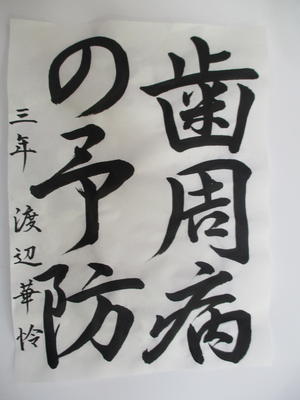 歯周病
の予防
三年 渡辺華怜